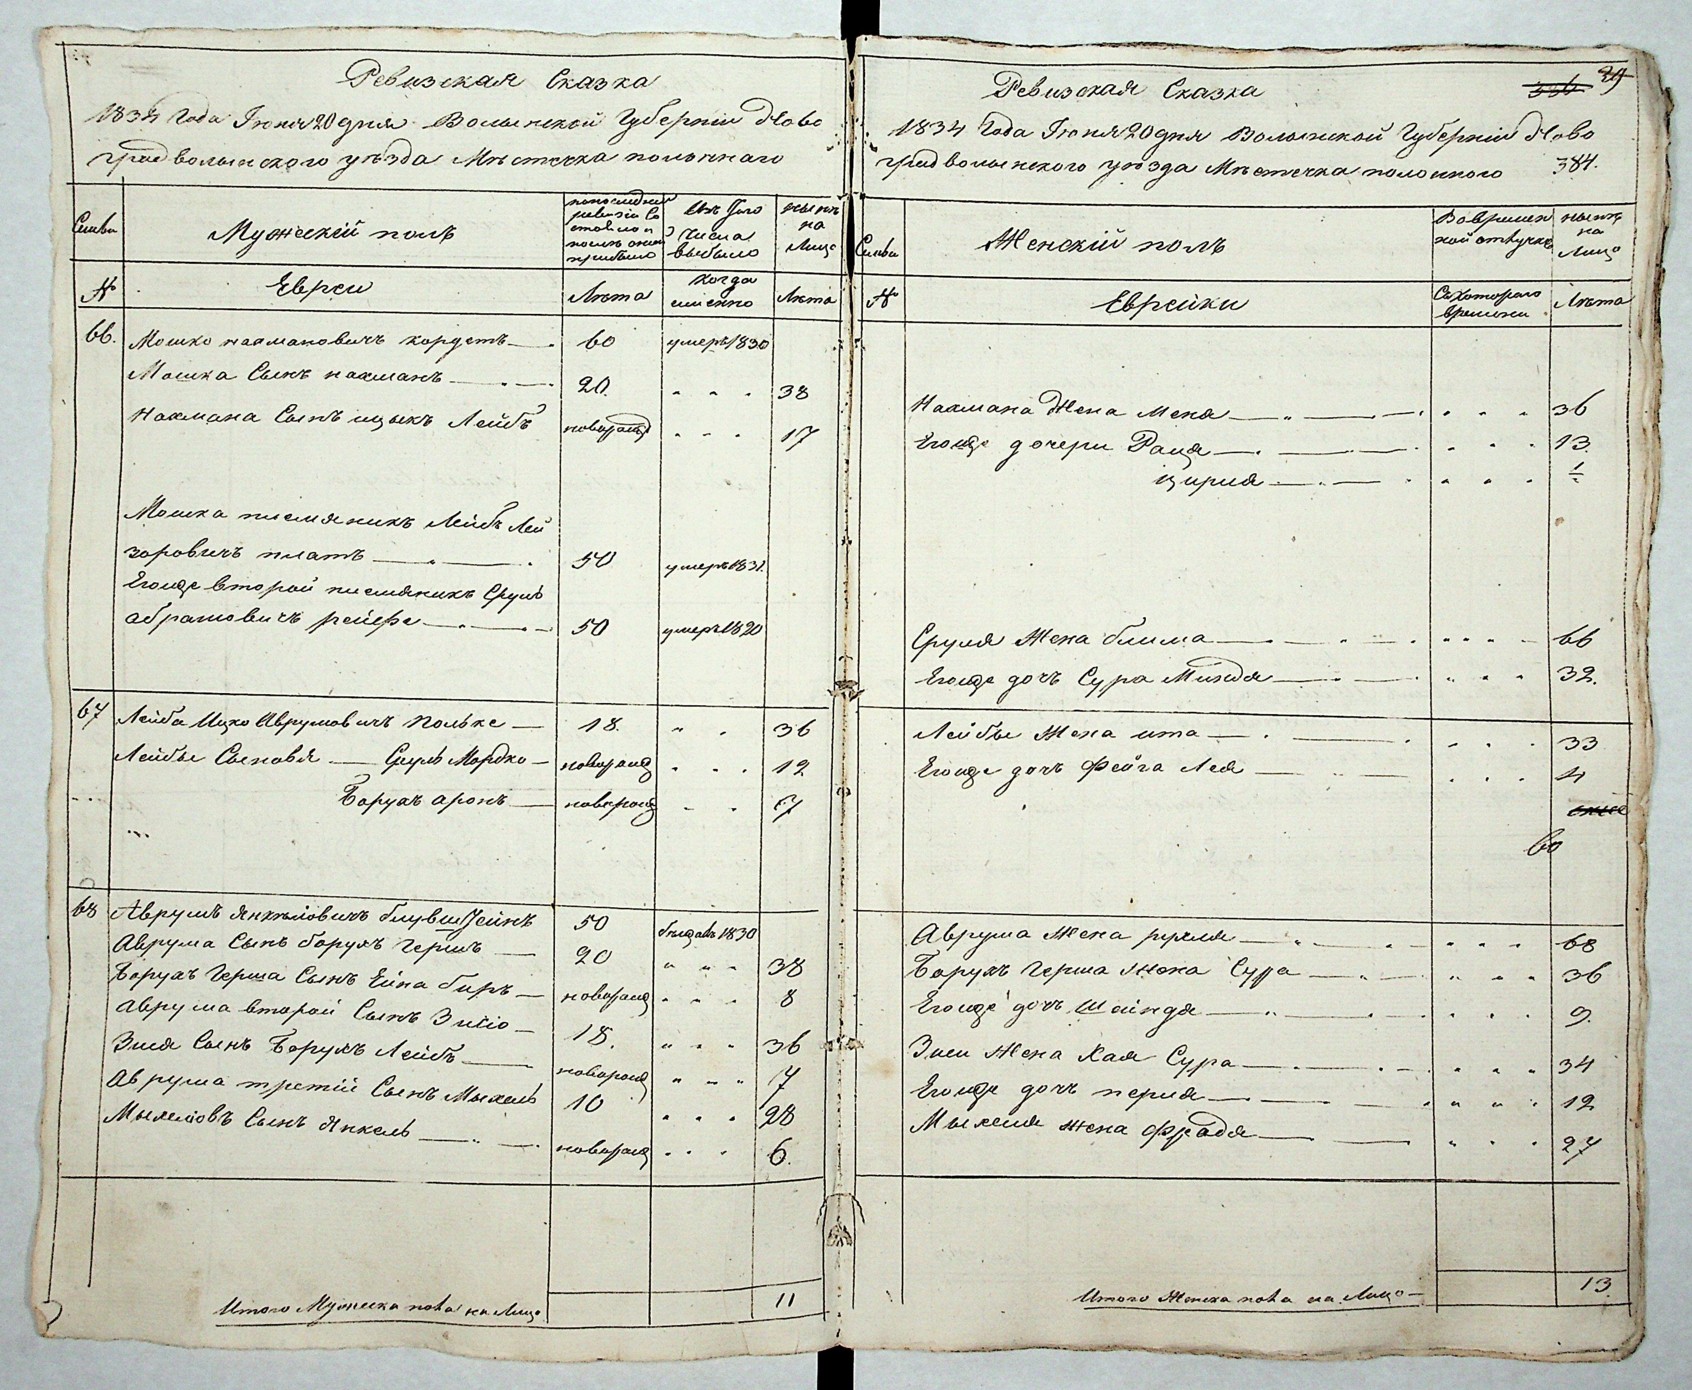 Ревизская Сказка
1834 Года Іюня 20 дня Волынской Губерніи Ново
градволынского уѣзда Мѣстечка полоннаго
Семьи
Мужескій полъ
по последней
ревизіи Со
стояло и
послѣ оной
прибыло
Изъ Того
числа
выбыло
нынѣ
на
Лицо
№
Евреи
Лѣта
когда
именно
Лѣта
66. Мошко нахмановичъ кордетъ 60 умеръ 1830
Мошка Сынъ нахманъ 20. 38
Нахмана Сынъ ицыкъ Лейбъ новорожд 17
Мошка племяникъ Лейбъ Лей
зоровичъ платъ 50 умеръ 1831.
Егожде второй племяникъ Сруль
абрамовичъ рейфе 50 умеръ 1820
67 Лейба Ицко Аврумовичъ Польке 18. 36
Лейбы Сыновья Сруль Мордко новорожд 12
Борухъ аронъ новорожд 7
68 Аврумъ Янкѣловичъ блувштейнъ 50 1830
Аврума Сынъ борухъ Гершъ 20 38
Борухъ Герша Сынъ Ейна биръ новорожд 8
Аврума второй Сынъ Зисіо 18. 36
Зися Сынъ Борухъ Лейбъ новорожд 7
Аврума третій Сынъ Мыхель 10 28
Мыхеліовъ Сынъ Янкель новорожд 6.
Итого Мужеска пола на Лицо 11
336 29
Ревизская Сказка
1834 Года Іюня 20 дня Волынской Губерніи Ново
градволынского уѣзда Мѣстечка полонного 384.
Семьи
Женскій полъ
Во времен
ной отлучкѣ
нынѣ
на
Лицо
№
Еврейки
Съ котораго
времени
Лѣта
Нахмана Жена Меня 36
Егожде дочери Раця 13.
Цирля 1/2
Сруля Жена блима 66
Егожде дочъ Сура Миндя 32.
Лейбы Жена ита 33
Егожде дочъ Фейга Лея 4
60
Аврума Жена рухля 68
Борухъ Герша жена Сура 36
Егожде дочъ Шейндя 9.
Зиси Жена Хая Сура 34
Егожде дочъ перля 12
Мыхеля жена Фрадя 27
Итого Женска пола на Лицо 13